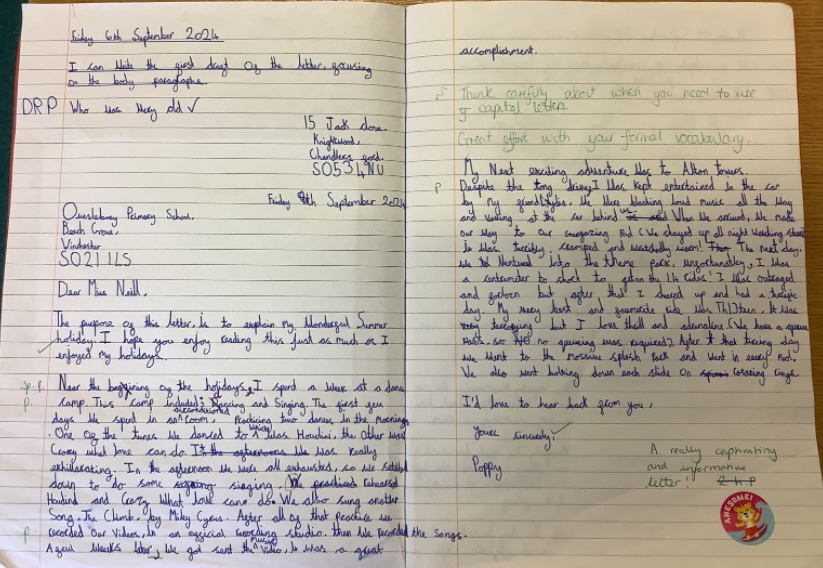 Friday 6th September 2024
I can write the first draft of the letter, focusing
on the body paragraphs.
DRP Who was very old ✓
15 Jack close.
Knightwood,
Chandlers ford.
SO53 4NU
Friday 6th September 2024
Owslebury Primary School.
Beech Grove,
Winchester
SO21 1LS
Dear Miss Neill,
The purpose of this letter, is to explain my Wonderful Summer
holiday. I hope you enjoy reading this just as much as I
enjoyed my holidays.
Near the beginning of the holidays, I spent a week at a dance
camp. This camp included; Dancing and Singing. The first few
days we spent in an airconditioned room, Practicing two dances in the mornings
. One of the tunes we danced to was Houdini, the other was
Crazy what love can do. It was really
exhillarating. In the afternoon we were all exhausted, so we settled
down to do some singing. We rehearsed
Houdini and Crazy What love can do. We also sung another
Song, The Climb, by Miley Cyrus. After all of that practice we
recorded our videos, in an official recording studio. then we recorded the songs.
A few weeks later, we got sent the music video, it was a great
accomplishment.
Think carefully about when you need to use
capital letters.
Great effort with your formal vocabulary.
My Next exciting adventure was to Alton towers.
P Despite the long drive, I was kept entertained in the car
by my We were blaring loud music all the way
and waving at the car behind us When we arrived, We made
our way to our Pod (We stayed up all night
it was terribly cramped and The next day,
we Ventured into the theme park, unfortunatley, I was
a centimeter to short to get on the 1.4 rides! I was outraged
and but after that I cheered up and had a terrific
day. My very best and favourite ride was Th13teen, It was
terrifying but I love thrill and adrenaline (We have a queue
pass, so no queuing was required) After that tiring day
we went to the massive splash Park and went in every Pool.
We also went down each slide on rings.
I'd love to hear back from you,
Yours sincerely, ✓
Poppy
A really captivating
and informative
letter! 2 h P
AWESOME!